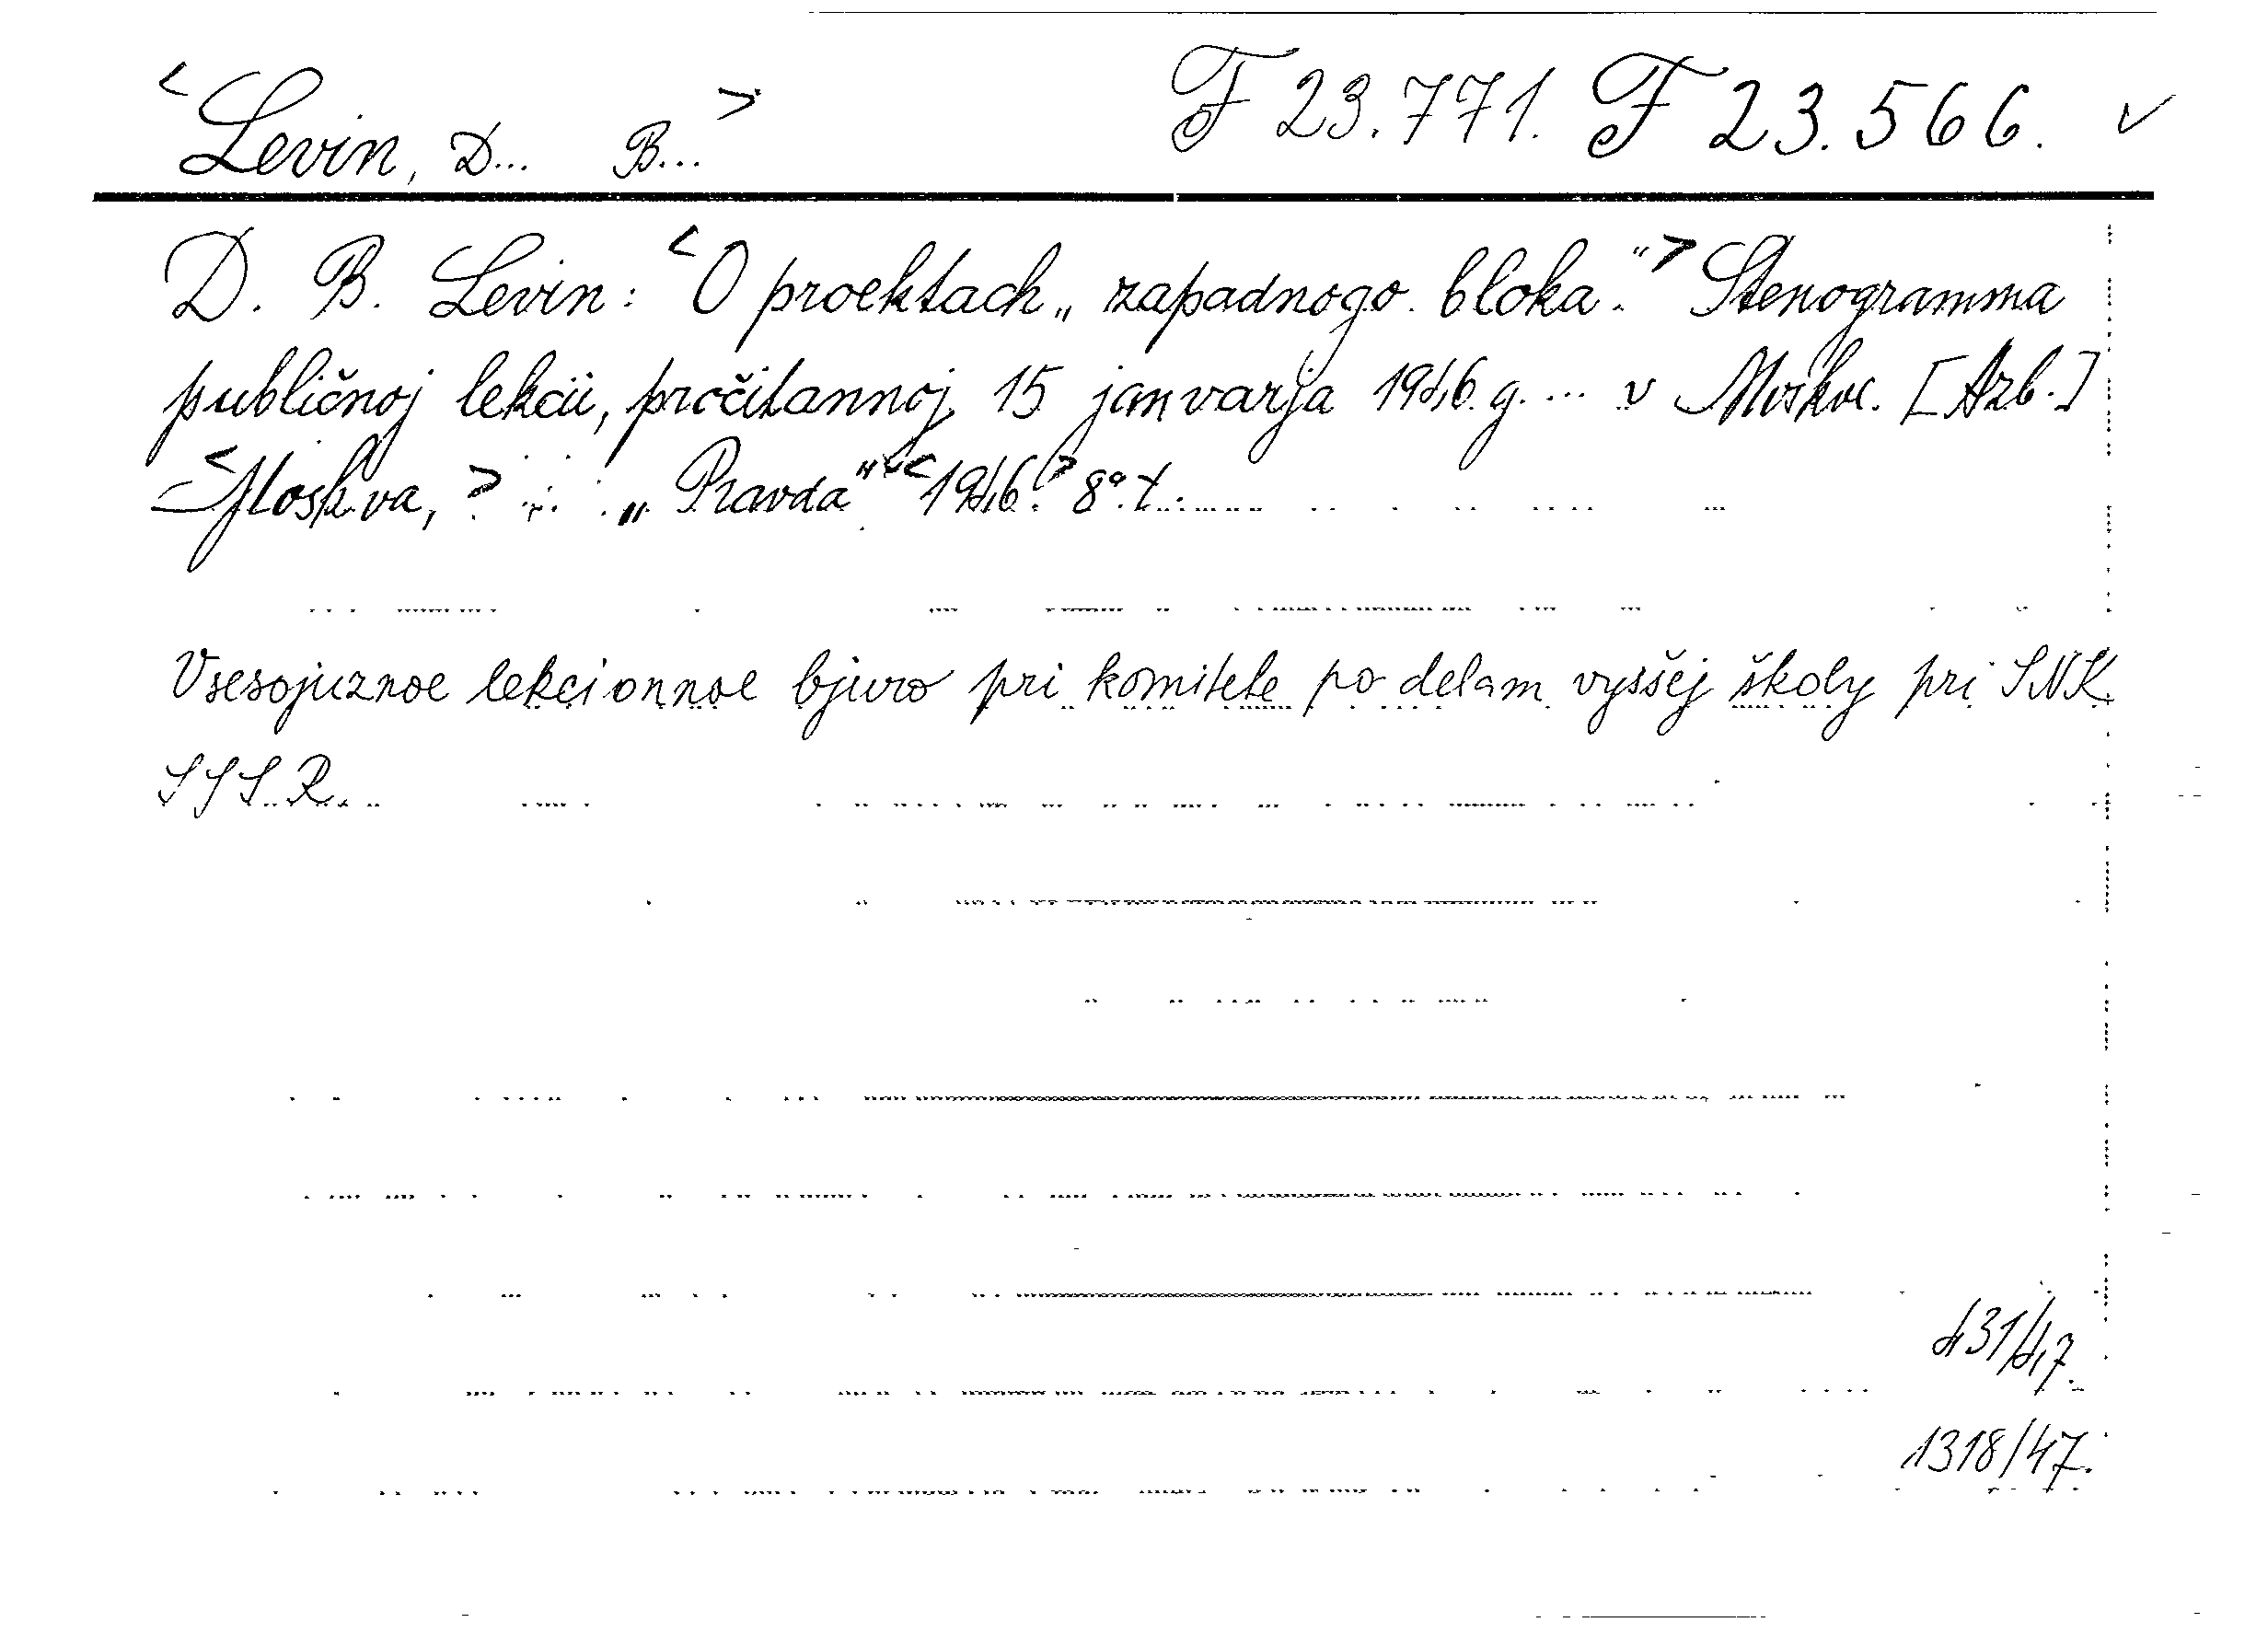 <Levin, D... B...> F 23.771. F 23.566. ✓
D. B. Levin: <O proektach „zapadnogo bloka.“> Stenogramma
publičnoj lekcii, pročitannoj 15 janvarja 1946 g. ... v Moskve. [Azb.]
<Moskva,> „Pravda“ <1946.> 8°.
Vsesojuznoe lekcionnoe bjuro pri komitete po delam vysšej školy pri SNK
SSSR.
431/47.
1318/47.